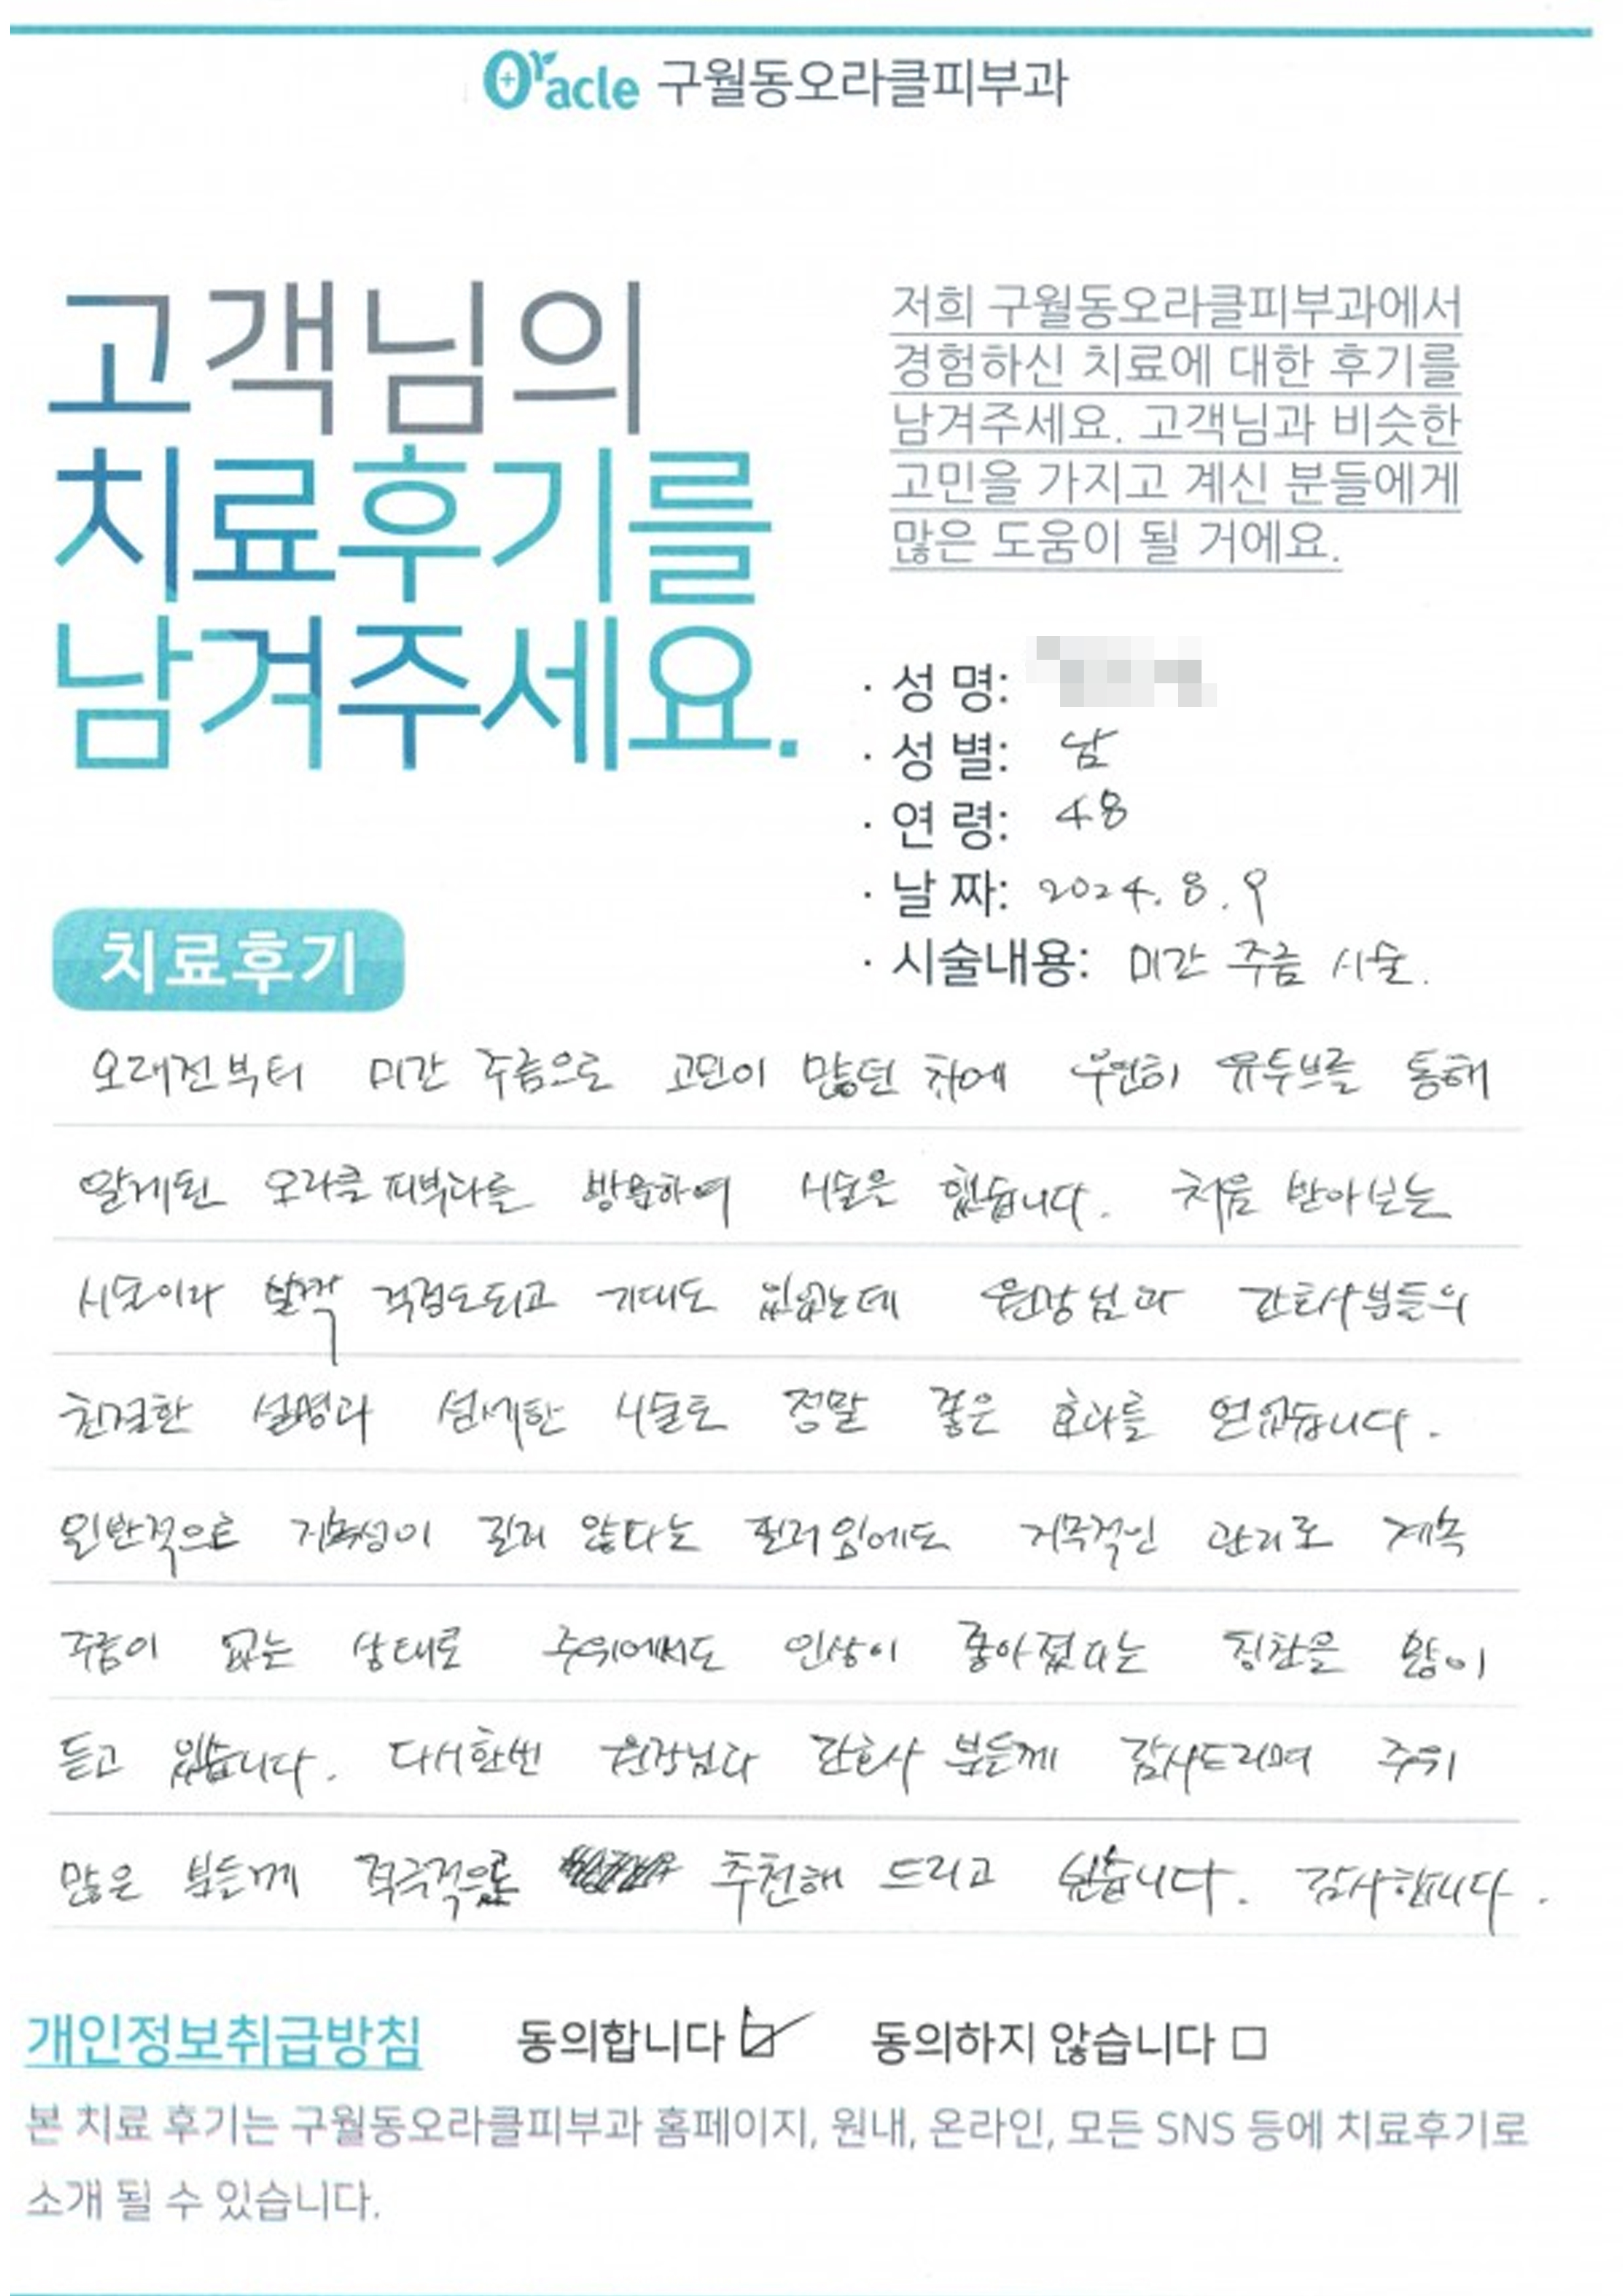 Oracle 구월동오라클피부과
고객님의
치료후기를
남겨주세요.
저희 구월동오라클피부과에서
경험하신 치료에 대한 후기를
남겨주세요. 고객님과 비슷한
고민을 가지고 계신 분들에게
많은 도움이 될 거에요.
· 성 명:
· 성 별: 남
· 연 령: 48
· 날 짜: 2024. 8. 9
· 시술내용: 미간 주름 시술.
치료후기
오래전부터 미간 주름으로 고민이 많던 차에 우연히 유투브를 통해
알게된 오라클 피부과를 방문하여 시술은 했습니다. 처음 받아보는
시술이라 살짝 걱정도되고 기대도 있었는데 원장님과 간호사분들의
친절한 설명과 섬세한 시술로 정말 좋은 효과를 얻었습니다.
일반적으로 지속성이 길지 않다는 필러임에도 지속적인 관리로 계속
주름이 없는 상태로 주위에서도 인상이 좋아졌다는 칭찬을 많이
듣고 있습니다. 다시한번 원장님과 간호사 분들께 감사드리며 주위
많은 분들께 적극적으로 추천해 드리고 싶습니다. 감사합니다.
개인정보취급방침 동의합니다 동의하지 않습니다
본 치료 후기는 구월동오라클피부과 홈페이지, 원내, 온라인, 모든 SNS 등에 치료후기로
소개 될 수 있습니다.